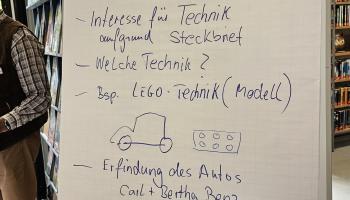 – Interesse für Technik
aufgrund Steckbrief
– Welche Technik?
– Bsp. LEGO-Technik (Modell)
– Erfindung des Autos
Carl + Bertha Benz